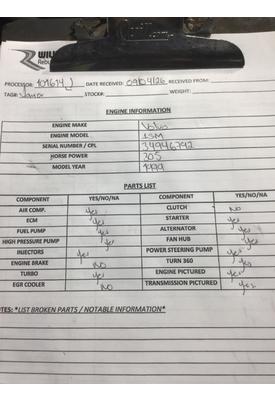 WILL
Rebu
PROCESSOR: DATE RECEIVED: 09/04/26 RECEIVED FROM:
TAG#: STOCK#: WEIGHT:
ENGINE INFORMATION
ENGINE MAKE Volvo
ENGINE MODEL ISM
SERIAL NUMBER / CPL 34946792
HORSE POWER 305
MODEL YEAR 1999
PARTS LIST
COMPONENT YES/NO/NA COMPONENT YES/NO/NA
AIR COMP. yes CLUTCH NO
ECM yes STARTER yes
FUEL PUMP yes ALTERNATOR yes
HIGH PRESSURE PUMP yes FAN HUB yes
INJECTORS yes POWER STEERING PUMP yes
ENGINE BRAKE NO TURN 360 yes
TURBO yes ENGINE PICTURED yes
EGR COOLER NO TRANSMISSION PICTURED yes
TES: *LIST BROKEN PARTS / NOTABLE INFORMATION*